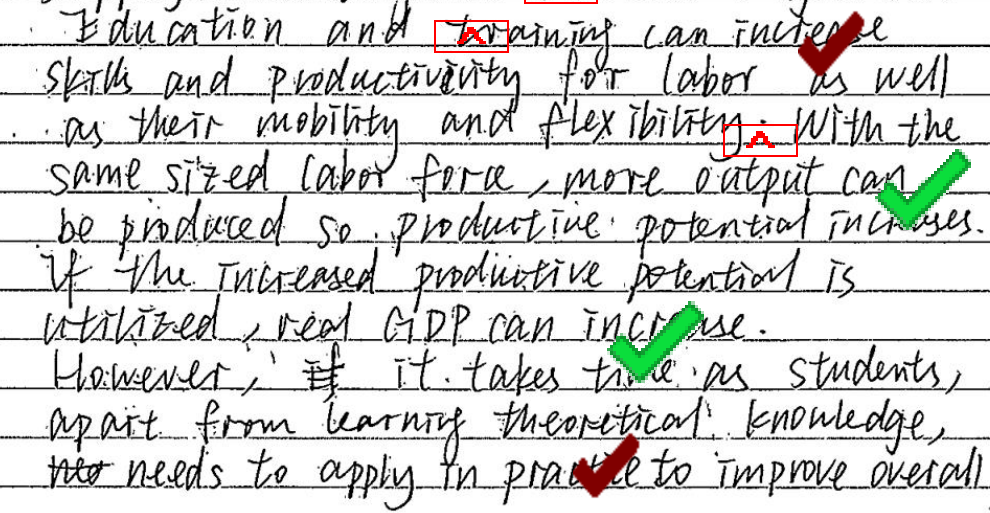 Education and training can increase
skills and productivitivity for labor as well
as their mobility and flexibility. With the
same sized labor force, more output can
be produced so productive potential increases.
If the increased productive potential is
utilized, real GDP can increase.
However, it takes time as students,
apart from learning theoretical knowledge,
needs to apply in practice to improve overall